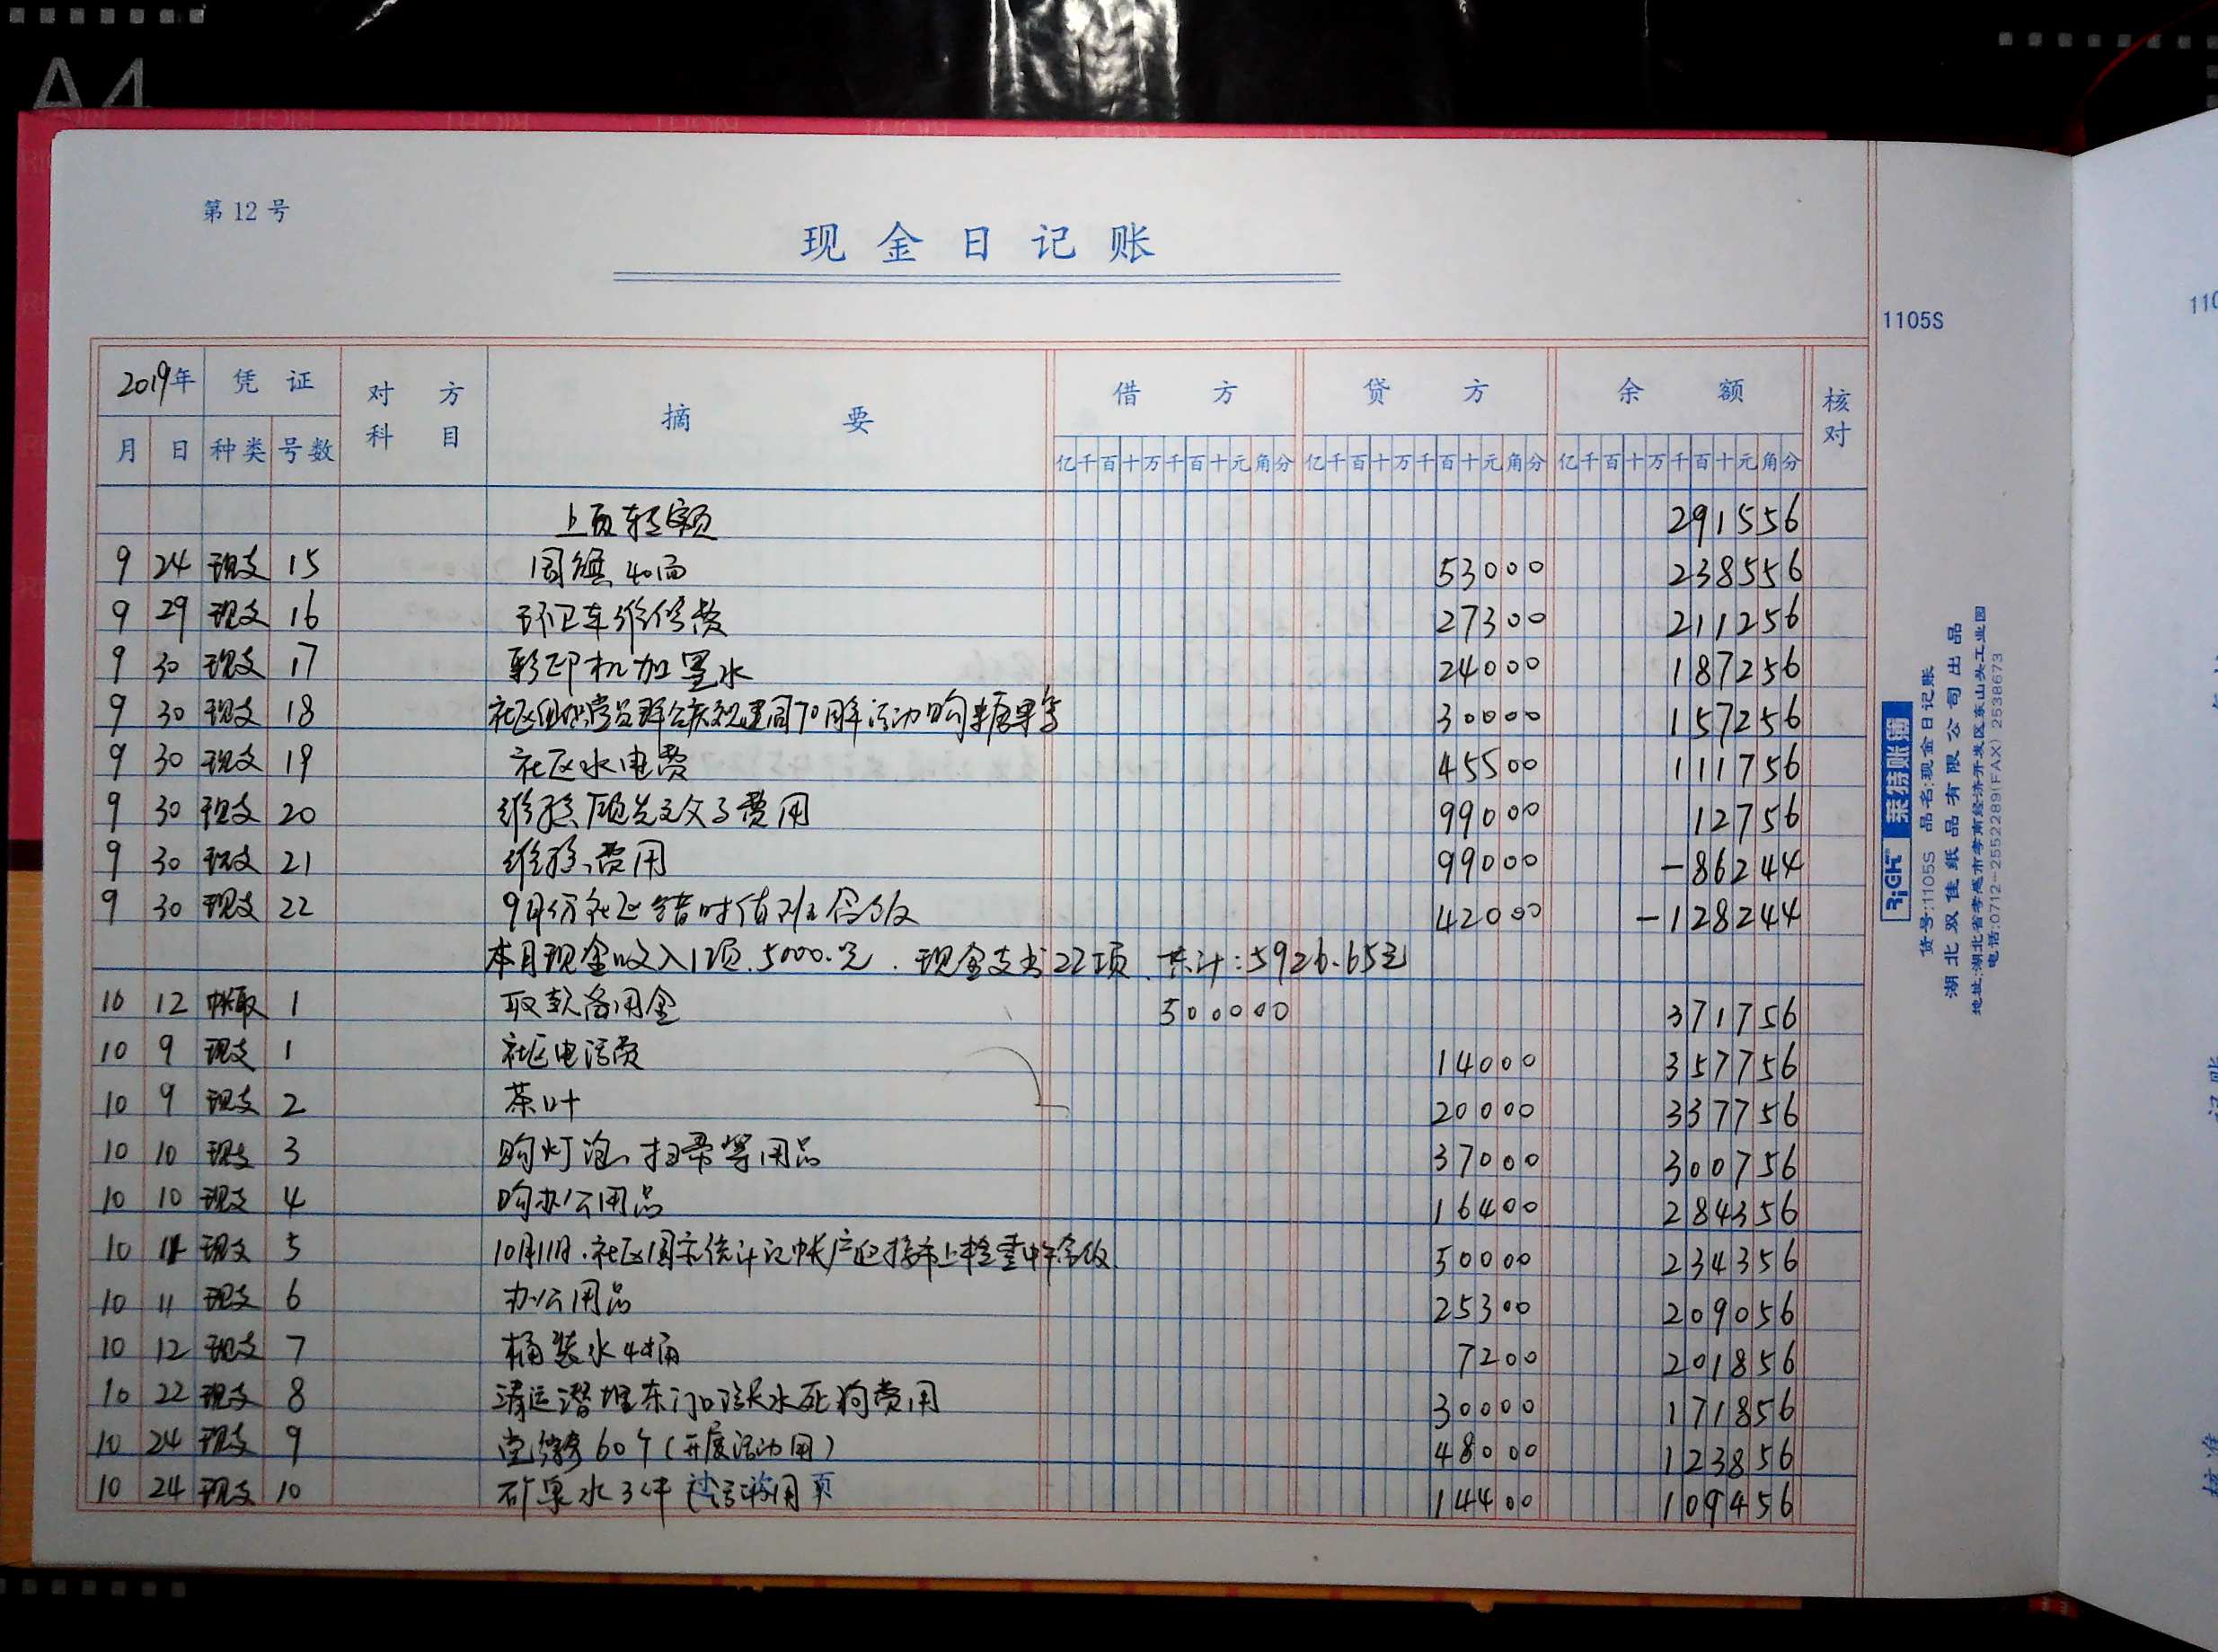 A4
第 12 号
现 金 日 记 账
1105S
2019年 凭 证 对 方 科 目 摘 要 借 方 贷 方 余 额 核对
月 日 种类 号数 亿千百十万千百十元角分 亿千百十万千百十元角分 亿千百十万千百十元角分
上页转额 291556
9 24 现支 15 国旗40面 53000 238556
9 29 现支 16 环卫车维修费 27300 211256
9 30 现支 17 彩印机加墨水 24000 187256
9 30 现支 18 社区组织党员群众庆祝建国70周年活动购糖果等 30000 157256
9 30 现支 19 社区水电费 45500 111756
9 30 现支 20 维稳 费用 99000 12756
9 30 现支 21 维稳费用 99000 -86244
9 30 现支 22 9月份社区错时值班合饭 42000 -128244
本月现金收入1项.5000.元.现金支出22项.共计:5926.65元
10 12 帐取 1 取款备用金 500000 371756
10 9 现支 1 社区电话费 14000 357756
10 9 现支 2 茶叶 20000 337756
10 10 现支 3 购灯泡、扫帚等用品 37000 300756
10 10 现支 4 购办公用品 16400 284356
10 11 现支 5 10月11日.社区国家统计记帐户迎接市上检查中午合饭 50000 234356
10 11 现支 6 办公用品 25300 209056
10 12 现支 7 桶装水4桶 7200 201856
10 22 现支 8 清运潜埋东门口 水死狗费用 30000 171856
10 24 现支 9 60个(开展活动用) 48000 123856
10 24 现支 10 矿泉水3件 109456 14400
RiGHT 莱特账簿
货号:1105S 品名:现金日记账
湖北双佳纸品有限公司出品
地址:湖北省孝感市孝南经济开发区东山头工业园
电话:0712-2552289(FAX) 2538673